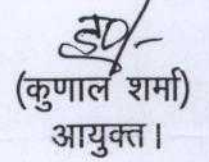 ह०/-
(कुणाल शर्मा)
आयुक्त।